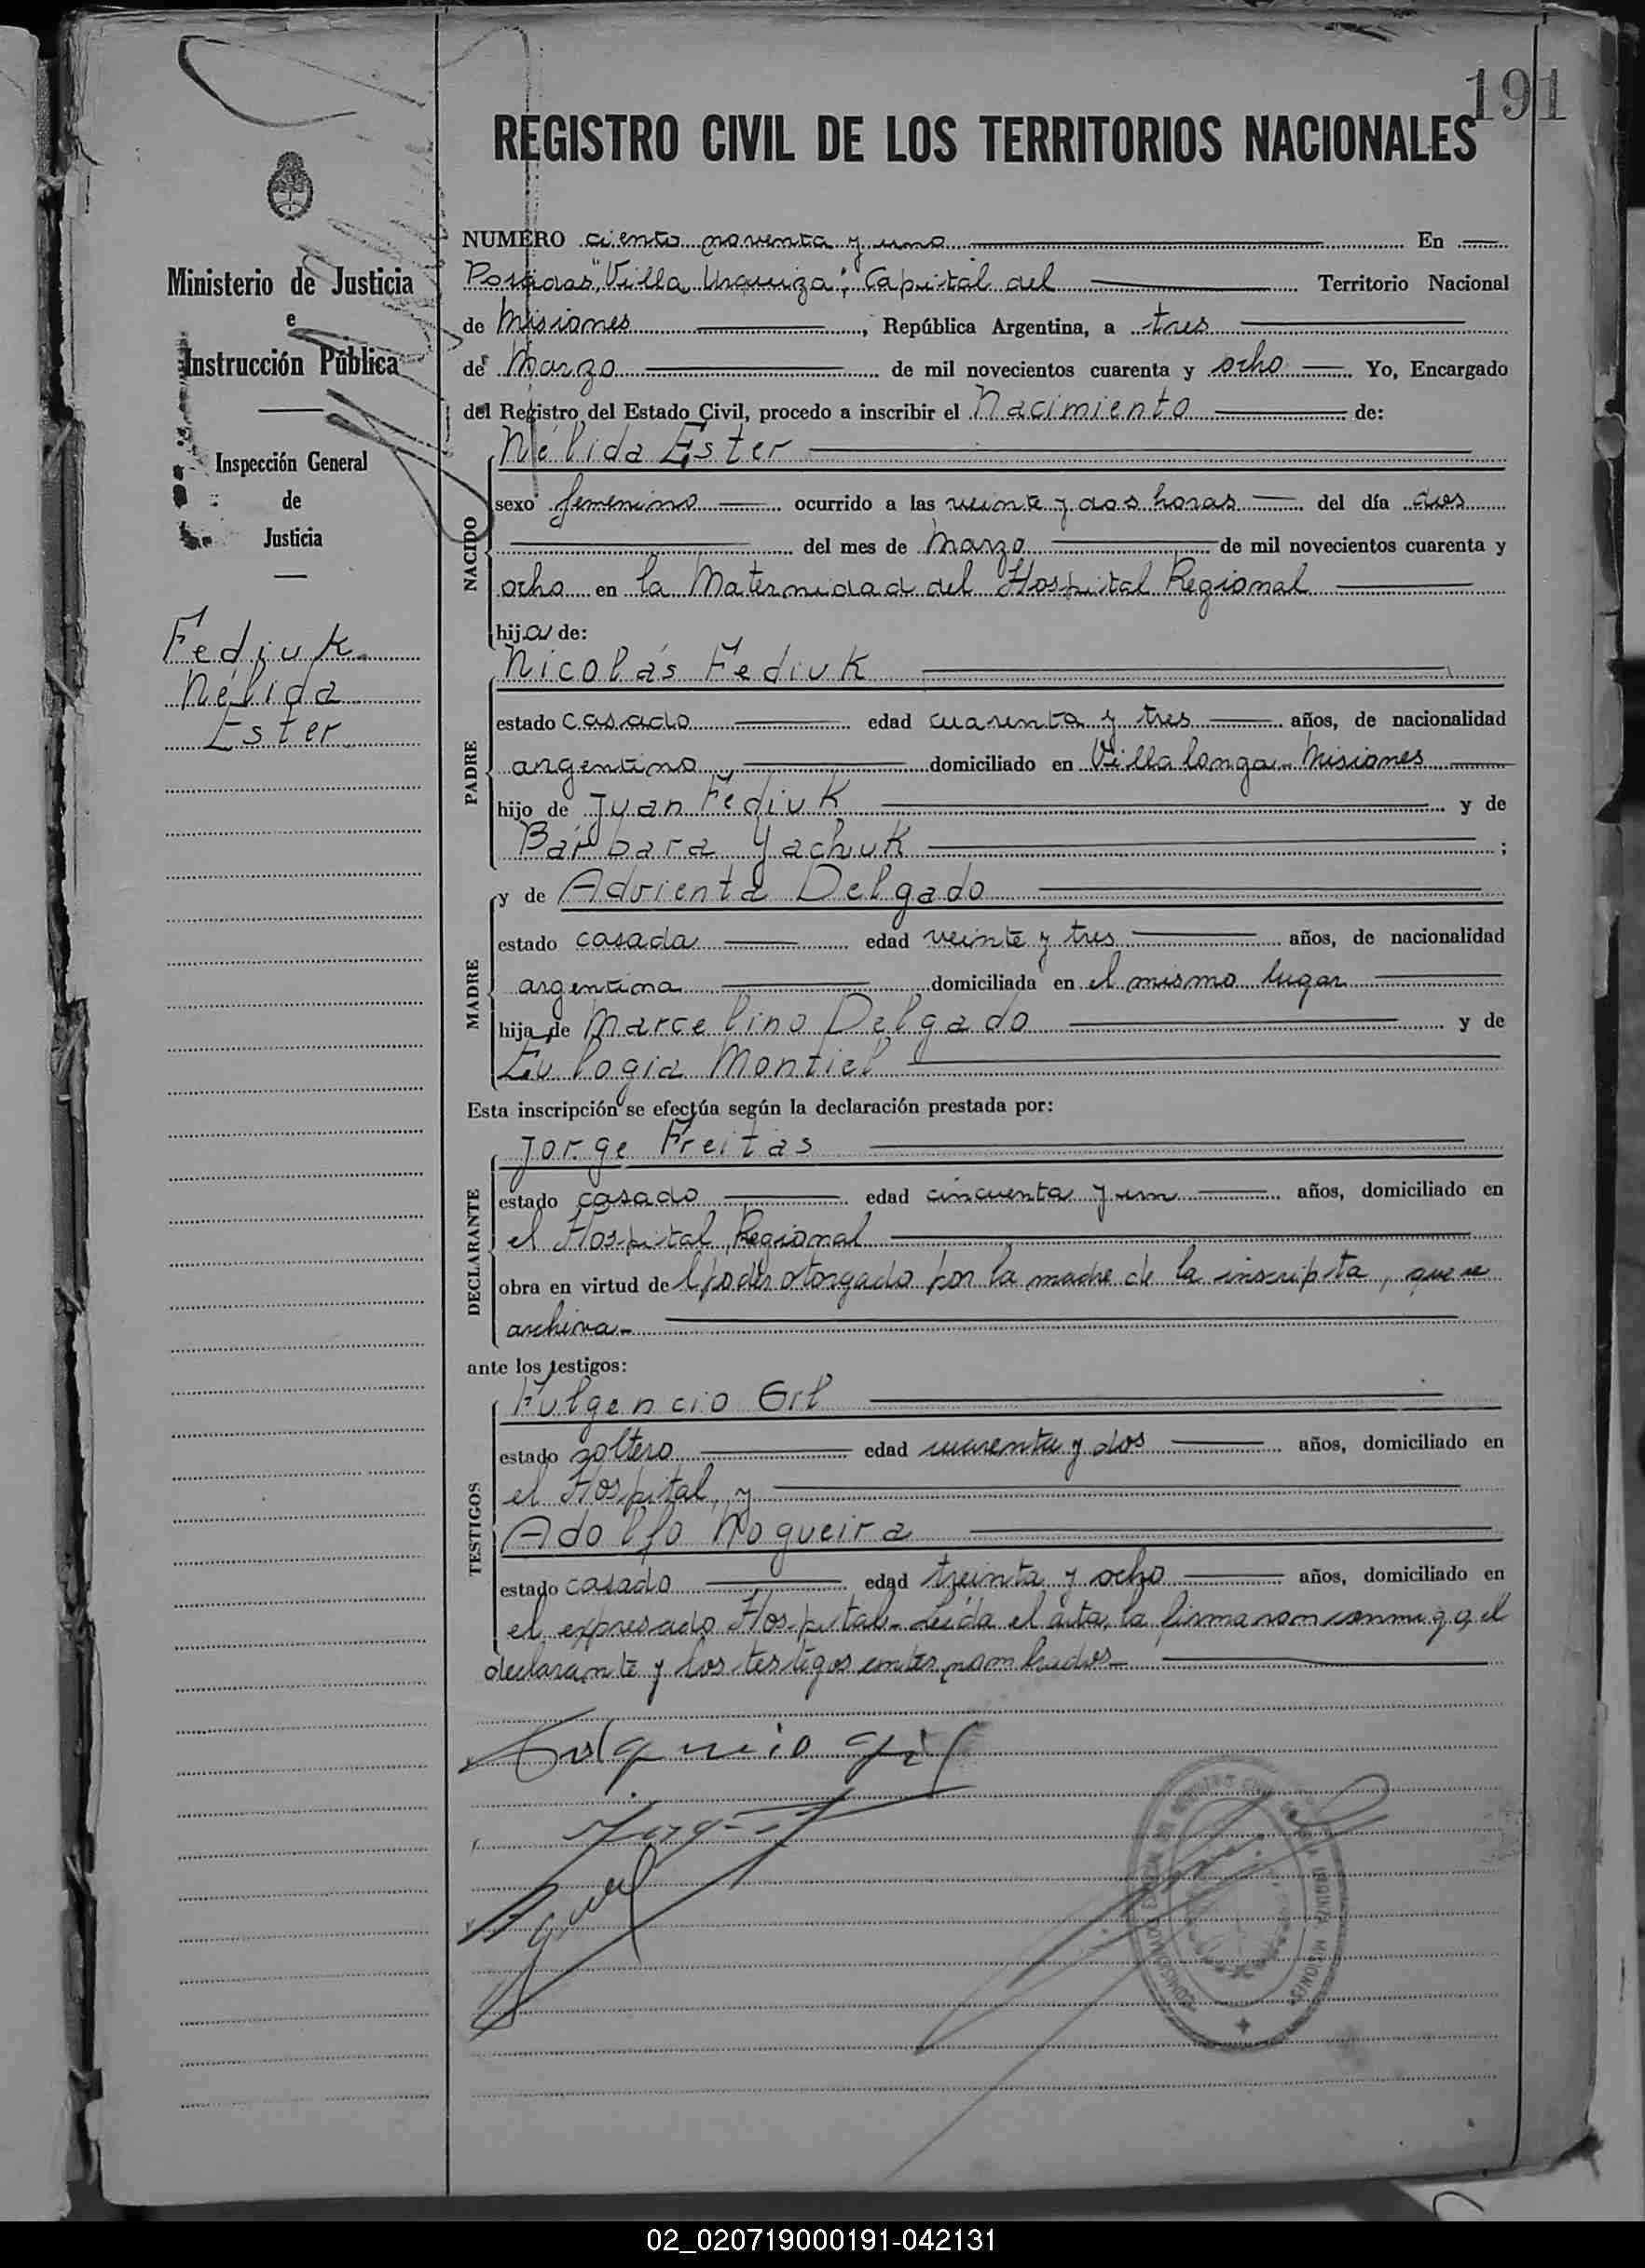 191
REGISTRO CIVIL DE LOS TERRITORIOS NACIONALES
Ministerio de Justicia
e
Instrucción Pública
Inspección General
de
Justicia
Fediuk
Nélida
Ester
NUMERO ciento noventa y uno En
Posadas "Villa Urquiza", Capital del Territorio Nacional
de Misiones, República Argentina, a tres
de Marzo de mil novecientos cuarenta y ocho Yo, Encargado
del Registro del Estado Civil, procedo a inscribir el Nacimiento de:
NACIDO
Nélida Ester
sexo femenino ocurrido a las veinte y dos horas del día dos
del mes de Marzo de mil novecientos cuarenta y
ocho en la Maternidad del Hospital Regional
hija de:
PADRE
Nicolás Fediuk
estado casado edad cuarenta y tres años, de nacionalidad
argentino domiciliado en Villalonga - Misiones
hijo de Juan Fediuk y de
Bárbara Yachuk ;
MADRE
y de Advienta Delgado
estado casada edad veinte y tres años, de nacionalidad
argentina domiciliada en el mismo lugar
hija de Marcelino Delgado y de
Eulogia Montiel
Esta inscripción se efectúa según la declaración prestada por:
DECLARANTE
Jorge Freitas
estado casado edad cincuenta y un años, domiciliado en
el Hospital Regional
obra en virtud del poder otorgado por la madre de la inscripta, que se
archiva.-
ante los testigos:
TESTIGOS
Fulgencio Gil
estado soltero edad cuarenta y dos años, domiciliado en
el Hospital, y
Adolfo Nogueira
estado casado edad treinta y ocho años, domiciliado en
el expresado Hospital.- Leída el acta, la firmaron conmigo, el
declarante y los testigos antes nombrados.-
Fulgencio Gil
02_020719000191-042131